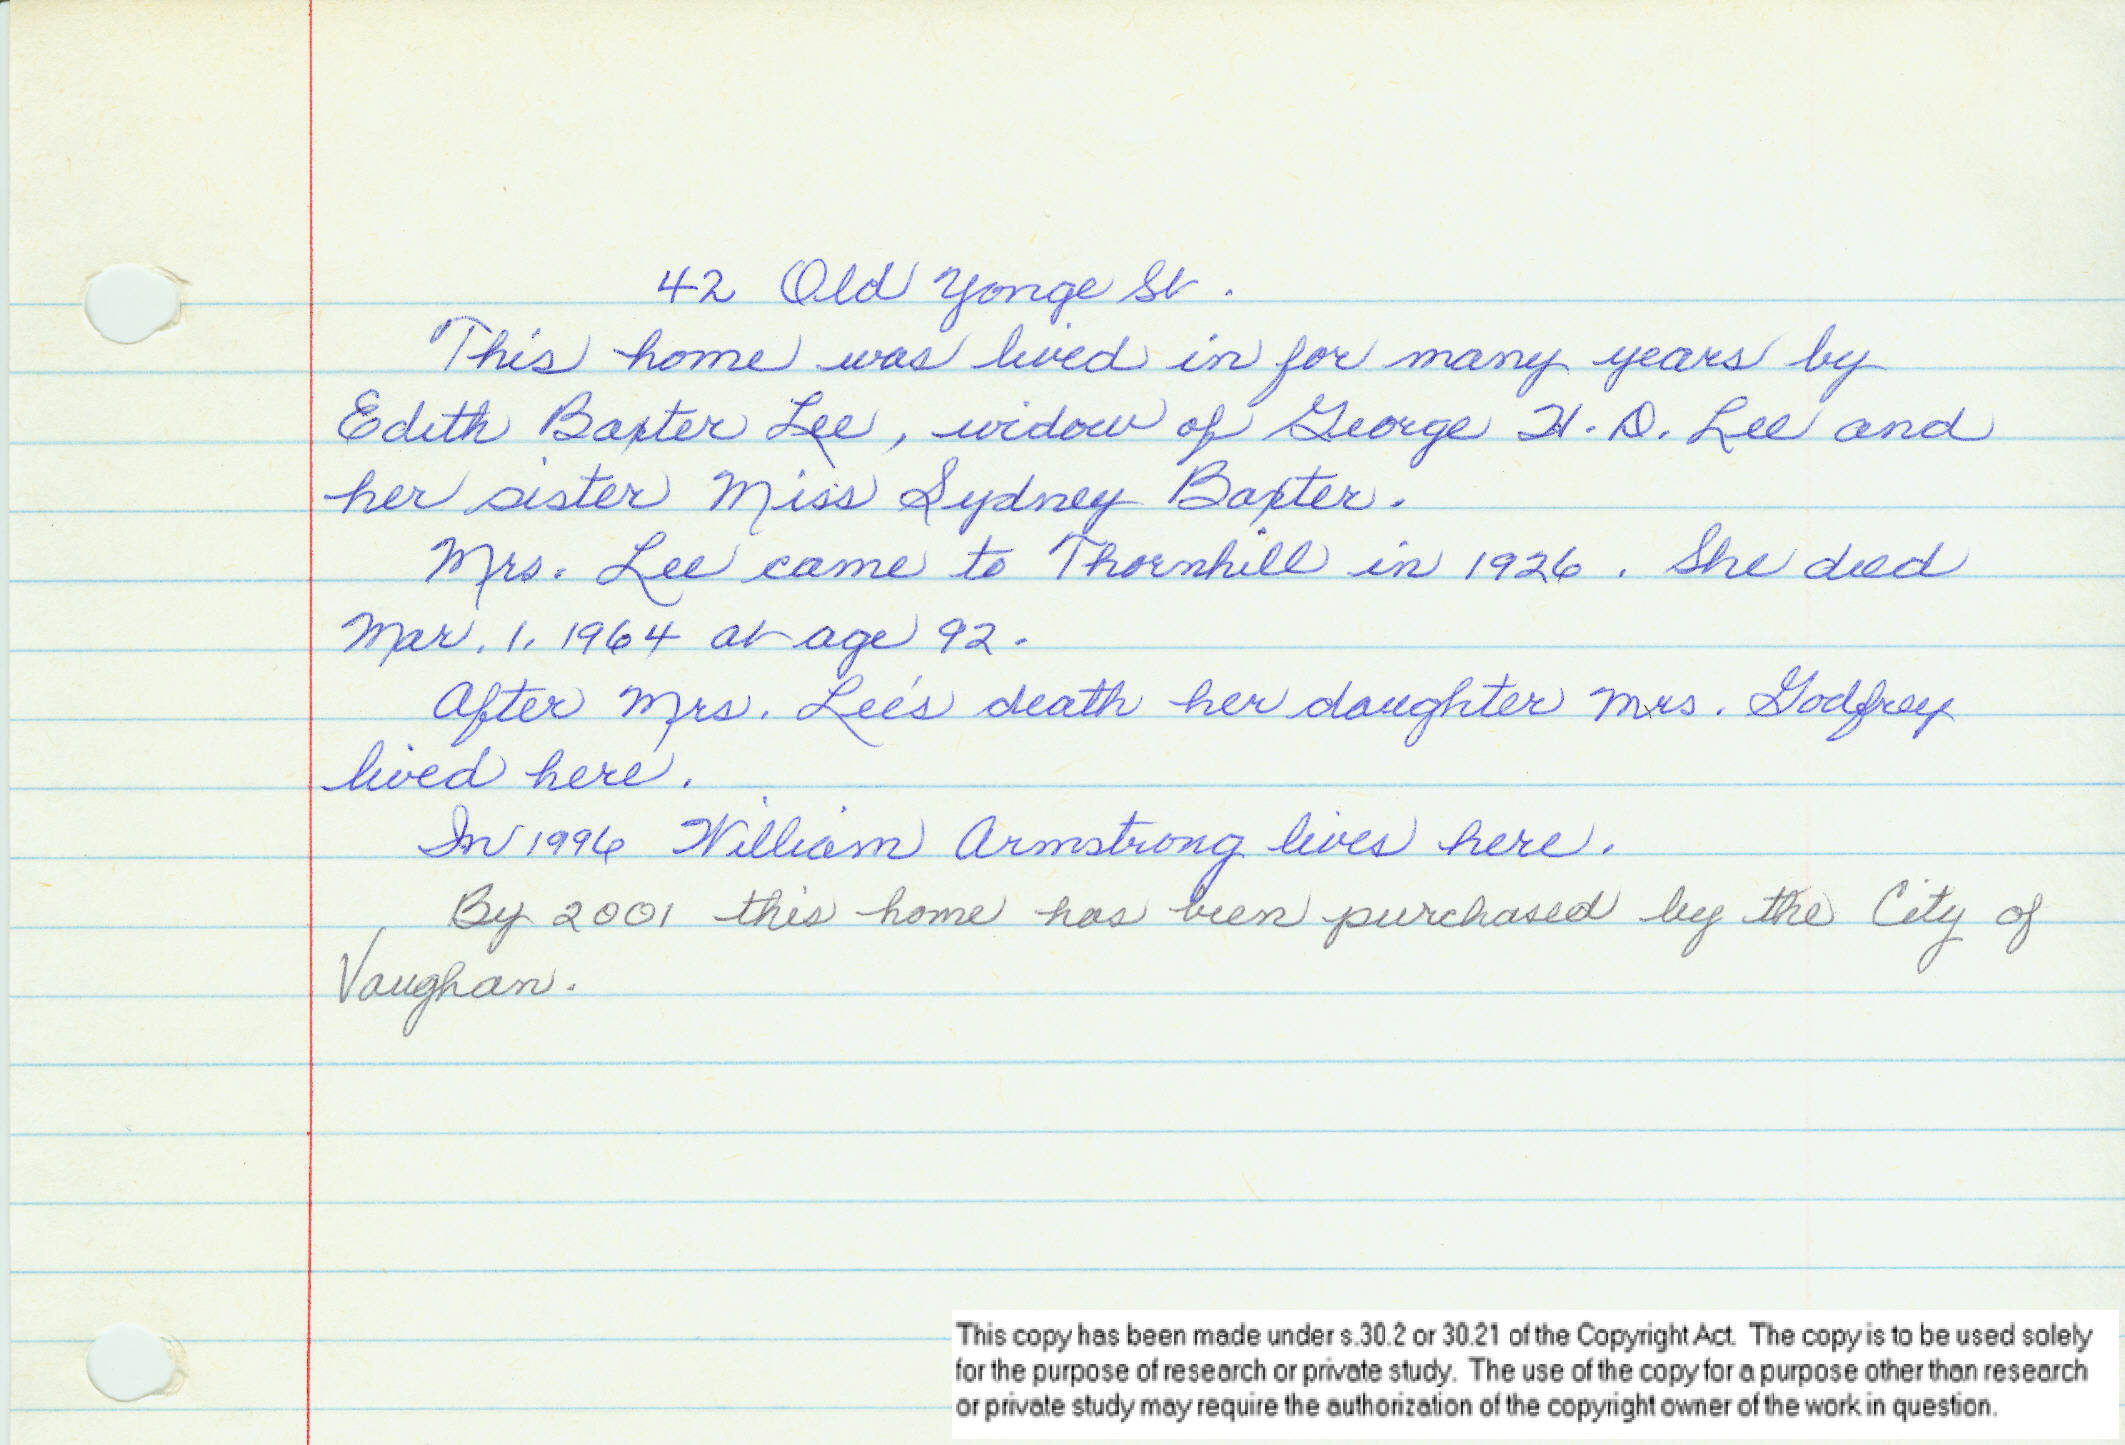 42 Old Yonge St.
This home was lived in for many years by
Edith Baxter Lee, widow of George H. D. Lee and
her sister Miss Sydney Baxter.
Mrs. Lee came to Thornhill in 1926. She died
Mar. 1. 1964 at age 92.
After Mrs. Lee's death her daughter Mrs. Godfrey
lived here.
In 1996 William Armstrong lives here.
By 2001 this home has been purchased by the City of
Vaughan.
This copy has been made under s.30.2 or 30.21 of the Copyright Act. The copy is to be used solely
for the purpose of research or private study. The use of the copy for a purpose other than research
or private study may require the authorization of the copyright owner of the work in question.